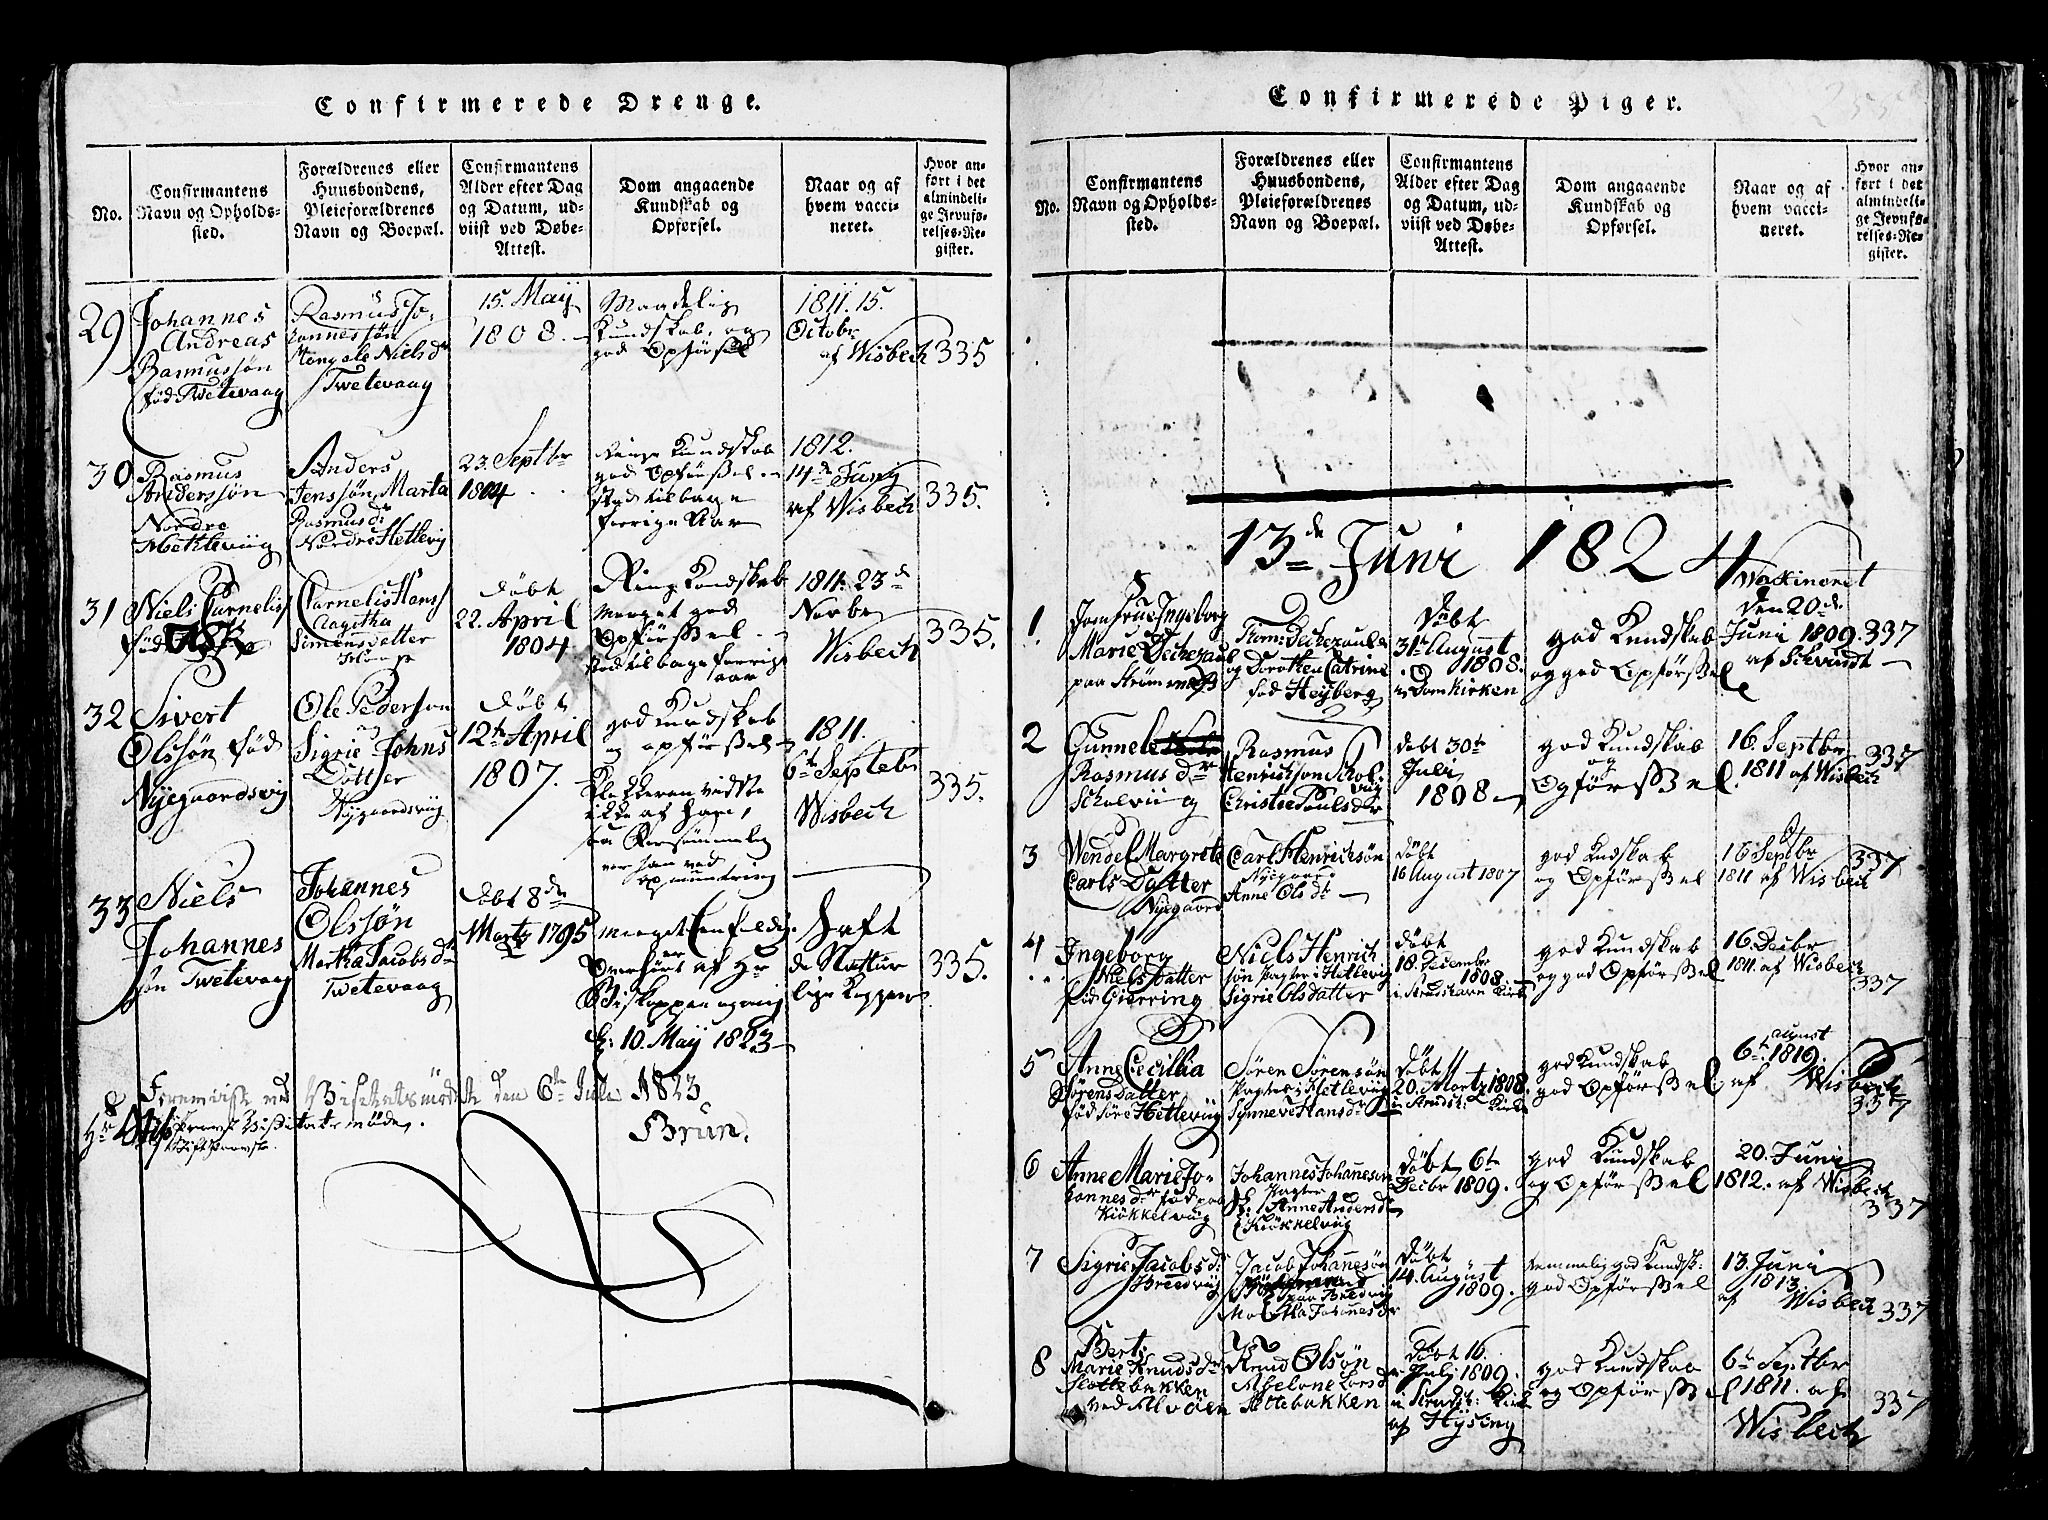 Confirmerede Drenge.
No.
Confirmantens
Navn og Opholds-
sted.
Forældrenes eller
Huusbondens,
Pleieforældrenes
Navn og Boepæl.
Confirmantens
Alder efter Dag
og Datum, ud-
viist ved Døbe-
Attest.
Dom angaaende
Kundskab og
Opførsel.
Naar og af
hvem vacci-
neret.
Hvor an-
ført i det
almindeli-
ge Jevnfø-
relses-Re-
gister.
29
Johannes
Andreas
Rasmussøn
fød Twetevaag
Rasmus Jo-
hannessøn
Niels dr
Twetevaag
15. May
1808.
Maadelig
Kundskab, og
god Opførsel
1811. 15.
Octobr
af Wisbech
335
30
Rasmus
Anderssøn
Nordre
Anders
Jenssøn Marta
Rasmusdr
Nordre Hetlevig
23. Septbr
1804
Kundskab
god Opførsel
stod tilbage
forrige Aar
1812.
14de Juny
af Wisbech
335.
31
Niels Cornelis
fød
Cornelis Hans
Simensdatter
døbt
22. April
1804
Ring Kundskab
meeget god
Opførsel
stod tilbage forrige
aar
1811. 23d
Norbr
Wisbech
335.
32
Sivert
Olssøn fød
Nyegaardsvig
Ole Pedersøn
Sigrie Johns
Dotter
Nygaardsvig
døbt
12te April
1807.
god Kundskab
og opførsel
Klokkeren vidste
ikke af ham,
saa
var han ved
opmuntring
1811.
6te Septebr
Wisbech
335.
33
Niels
Johannes
søn Twetevaag
Johannes
Olssøn
Martha Jacobsdtr
Twetevaag
døbt 8de
Martz 1795
meeget Eenfoldig.
er
Overhørt af Hr
Biskoppen og mig
d: 10. May 1823
Haft
de Nattur
lige Kopper
335.
Foreviist ved Visitatsmødet den 6te Juli 1823
Brun.
Confirmerede Piger.
255
No.
Confirmantens
Navn og Opholds-
sted.
Forældrenes eller
Huusbondens,
Pleieforældrenes
Navn og Boepæl.
Confirmantens
Alder efter Dag
og Datum, ud-
viist ved Døbe-
Attest.
Dom angaaende
Kundskab og
Opførsel.
Naar og af
hvem vacci-
neret.
Hvor an-
ført i det
almindeli-
ge Jevnfø-
relses-Re-
gister.
13de Juni 1824
1
Jomfrue Ingeborg
Marie Dechezaul
paa
Dechezaule
og Dorothea Catrine
fød Heyberg
Døbt
31te August
1808.
i Domkirken
god Kundskab
og god Opførsel
Wakineret
den 20d.
Juni 1809.
af Schwindt
337
2
Gunnele
Rasmus dr
Scholviig
Rasmus
Henrichsøn Schol-
vig
Christie Poulsdr
døbt 30te
Juli
1808
god Kundskab
og
Opførsel.
16. Septbr
1811 af Wisbech
337
3
Wendel Margrete
Carls Datter
Nyegaard
Carl Henrichsøn
Nyegaard
Anne Olsdr
døbt
16 August 1807
god Kndskab
og Opførsel
16 Septbr
1811 af Wisbech
337
4
Ingeborg
Niels Datter
fød Gierring
Niels Henrich
søn Pagter i Hetlevig
Sigrie Olsdatter
døbt
18. December
1808
i Strudshavn Kirke
god Kundskab
og god Opførsel
16. Decbr
1811. af Wisbech
337
5
Anne Cecillia
Sørens Datter
fød Søre Hetleviig
Søren Sørensøn
Pagter i Hetleviig
Synneve Hansdr
Døbt
20. Martz 1808.
i Strudsh: Kirke
god Kundskab
god Opførsel
6te August
1810.
af Wisbech
337
6
Anne Marie Jo-
hannesdr fød paa
Kiökkelviig
Johannes Johannesøn
Pagter
Anne Andersdr
Kiökkelviig
Døbt 6te
Decbr 1809.
god Kundskab
og Opførsel
20. Juni
1812. af Wisbech
337
7
Sigrie Jacobsdr
Breedviig
Jacob Johannesøn
paa Bredvig
Martha Johannesdr
Døbt
14. August
1809.
temmelig god Kundsk:
god Opførsel
13. Juni
1813.
af Wisbech
337
8
Bert:
Marie Knudsdr
Slottebakken
ved Alvøen
Knud Olsøn
Larsdr
Slottebakken
Døbt 16.
Julj 1809.
i Strudsh: Kirke
af Hysing
god Kundskab
og Opførsel
6te Septbr
1811. af
Wisbech
337